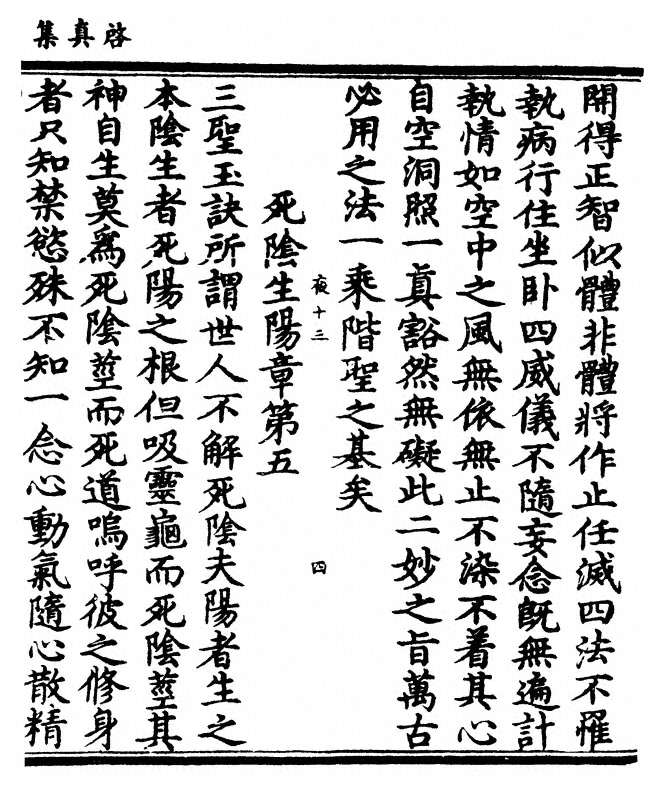 啓真集
開得正智似體非體將作止任滅四法不罹
執病行住坐卧四威儀不隨妄念既無遍計
執情如空中之風無依無止不染不着其心
自空洞照一真豁然無礙此二妙之旨萬古
必用之法一乘階聖之基矣
夜十三
四
死陰生陽章第五
三聖玉訣所謂世人不解死陰夫陽者生之
本陰生者死陽之根但吸靈龜而死陰莖其
神自生莫爲死陰莖而死道嗚呼彼之修身
者只知禁慾殊不知一念心動氣隨心散精